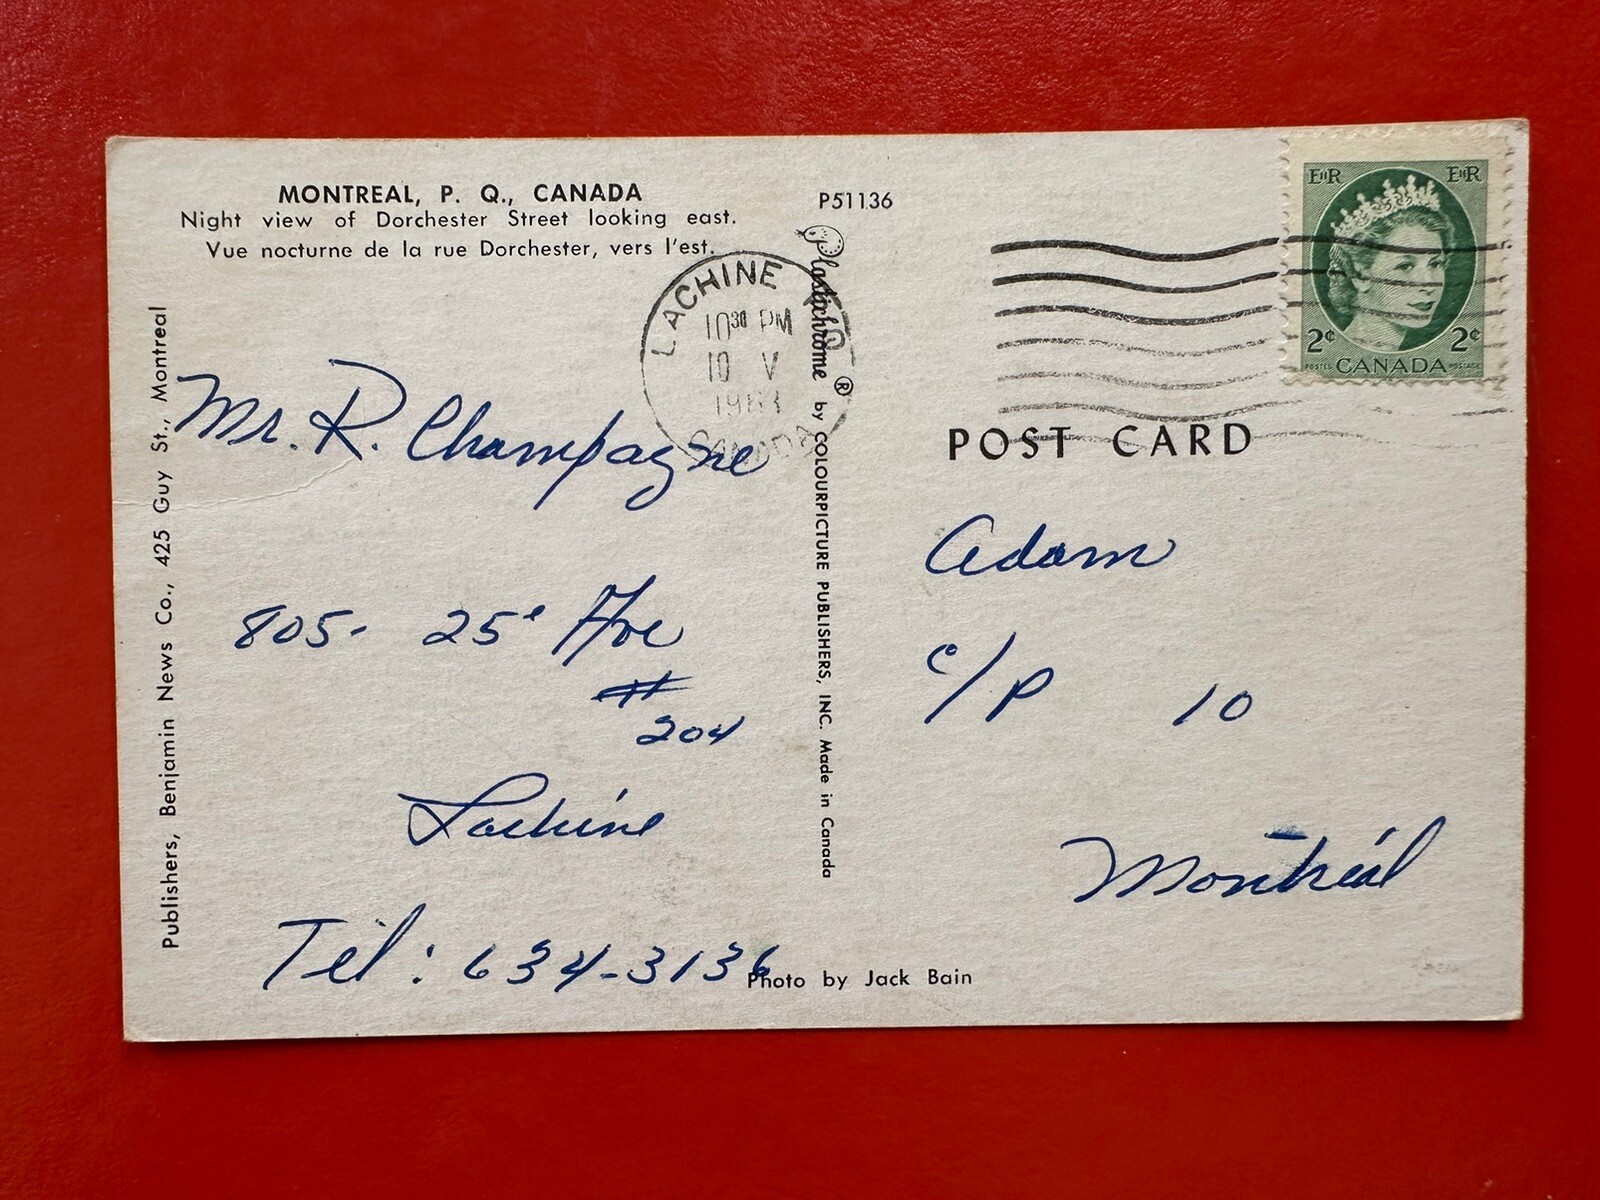 MONTREAL, P. Q., CANADA
Night view of Dorchester Street looking east.
Vue nocturne de la rue Dorchester, vers l'est.
P51136
Publishers, Benjamin News Co., 425 Guy St., Montreal
LACHINE
10 30 PM
10 V
1963
CANADA
Plastichrome ® by COLOURPICTURE PUBLISHERS, INC. Made in Canada
EIIR EIIR
2¢ 2¢
POSTES CANADA POSTAGE
POST CARD
Mr. R. Champagne
805- 25e Ave
#
204
Lachine
Tél: 634-3136
Adam
c/P 10
Montréal
Photo by Jack Bain